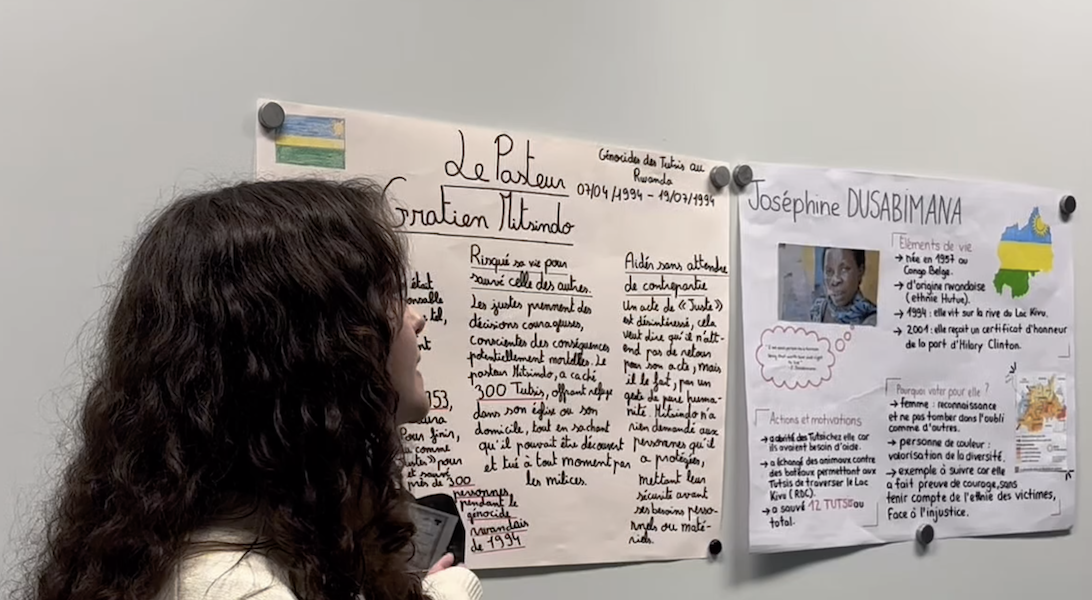 Le Pasteur
Gratien Mitsindo
Génocides des Tutsis au
Rwanda
07/04/1994 - 19/07/1994
état
tel,
353,
Pour finir,
comme
pour
et sauvé
près de 300
personnes
pendant le
génocide
rwandais
de 1994
Risqué sa vie pour
sauvé celle des autres.
Les justes prennent des
décisions courageuses,
conscientes des conséquences
potentiellement mortelles. Le
pasteur Mitsindo, a caché
300 Tutsis, offrant refuge
dans son église ou son
domicile, tout en sachant
qu'il pouvait être découvert
et tué à tout moment par
les milices.
Aidés sans attendre
de contrepartie
Un acte de « Juste »
est désintéressé, cela
veut dire qu'il n'att-
end pas de retour
pour son acte, mais
il le fait, par un
geste de pure huma-
nité. Mitsindo n'a
rien demandé aux
personnes qu'il
a protégées,
mettant leur
sécurité avant
ses besoins perso-
nnels ou maté-
riels.
Joséphine DUSABIMANA
Eléments de vie
→ née en 1957 au
Congo Belge.
→ d'origine rwandaise
(ethnie Hutue).
→ 1994 : elle vit sur la rive du Lac Kivu.
→ 2001 : elle reçoit un certificat d'honneur
de la part d'Hilary Clinton.
Actions et motivations
→ a abrité des Tutsis chez elle car
ils avaient besoin d'aide.
→ a échangé des animaux contre
des bateaux permettant aux
Tutsis de traverser le Lac
Kivu (RDC).
→ a sauvé 12 TUTSIS au
total.
Pourquoi voter pour elle ?
→ femme : reconnaissance
et ne pas tomber dans l'oubli
comme d'autres.
→ personne de couleur :
valorisation de la diversité.
→ exemple à suivre car elle
a fait preuve de courage, sans
tenir compte de l'ethnie des victimes,
face à l'injustice.